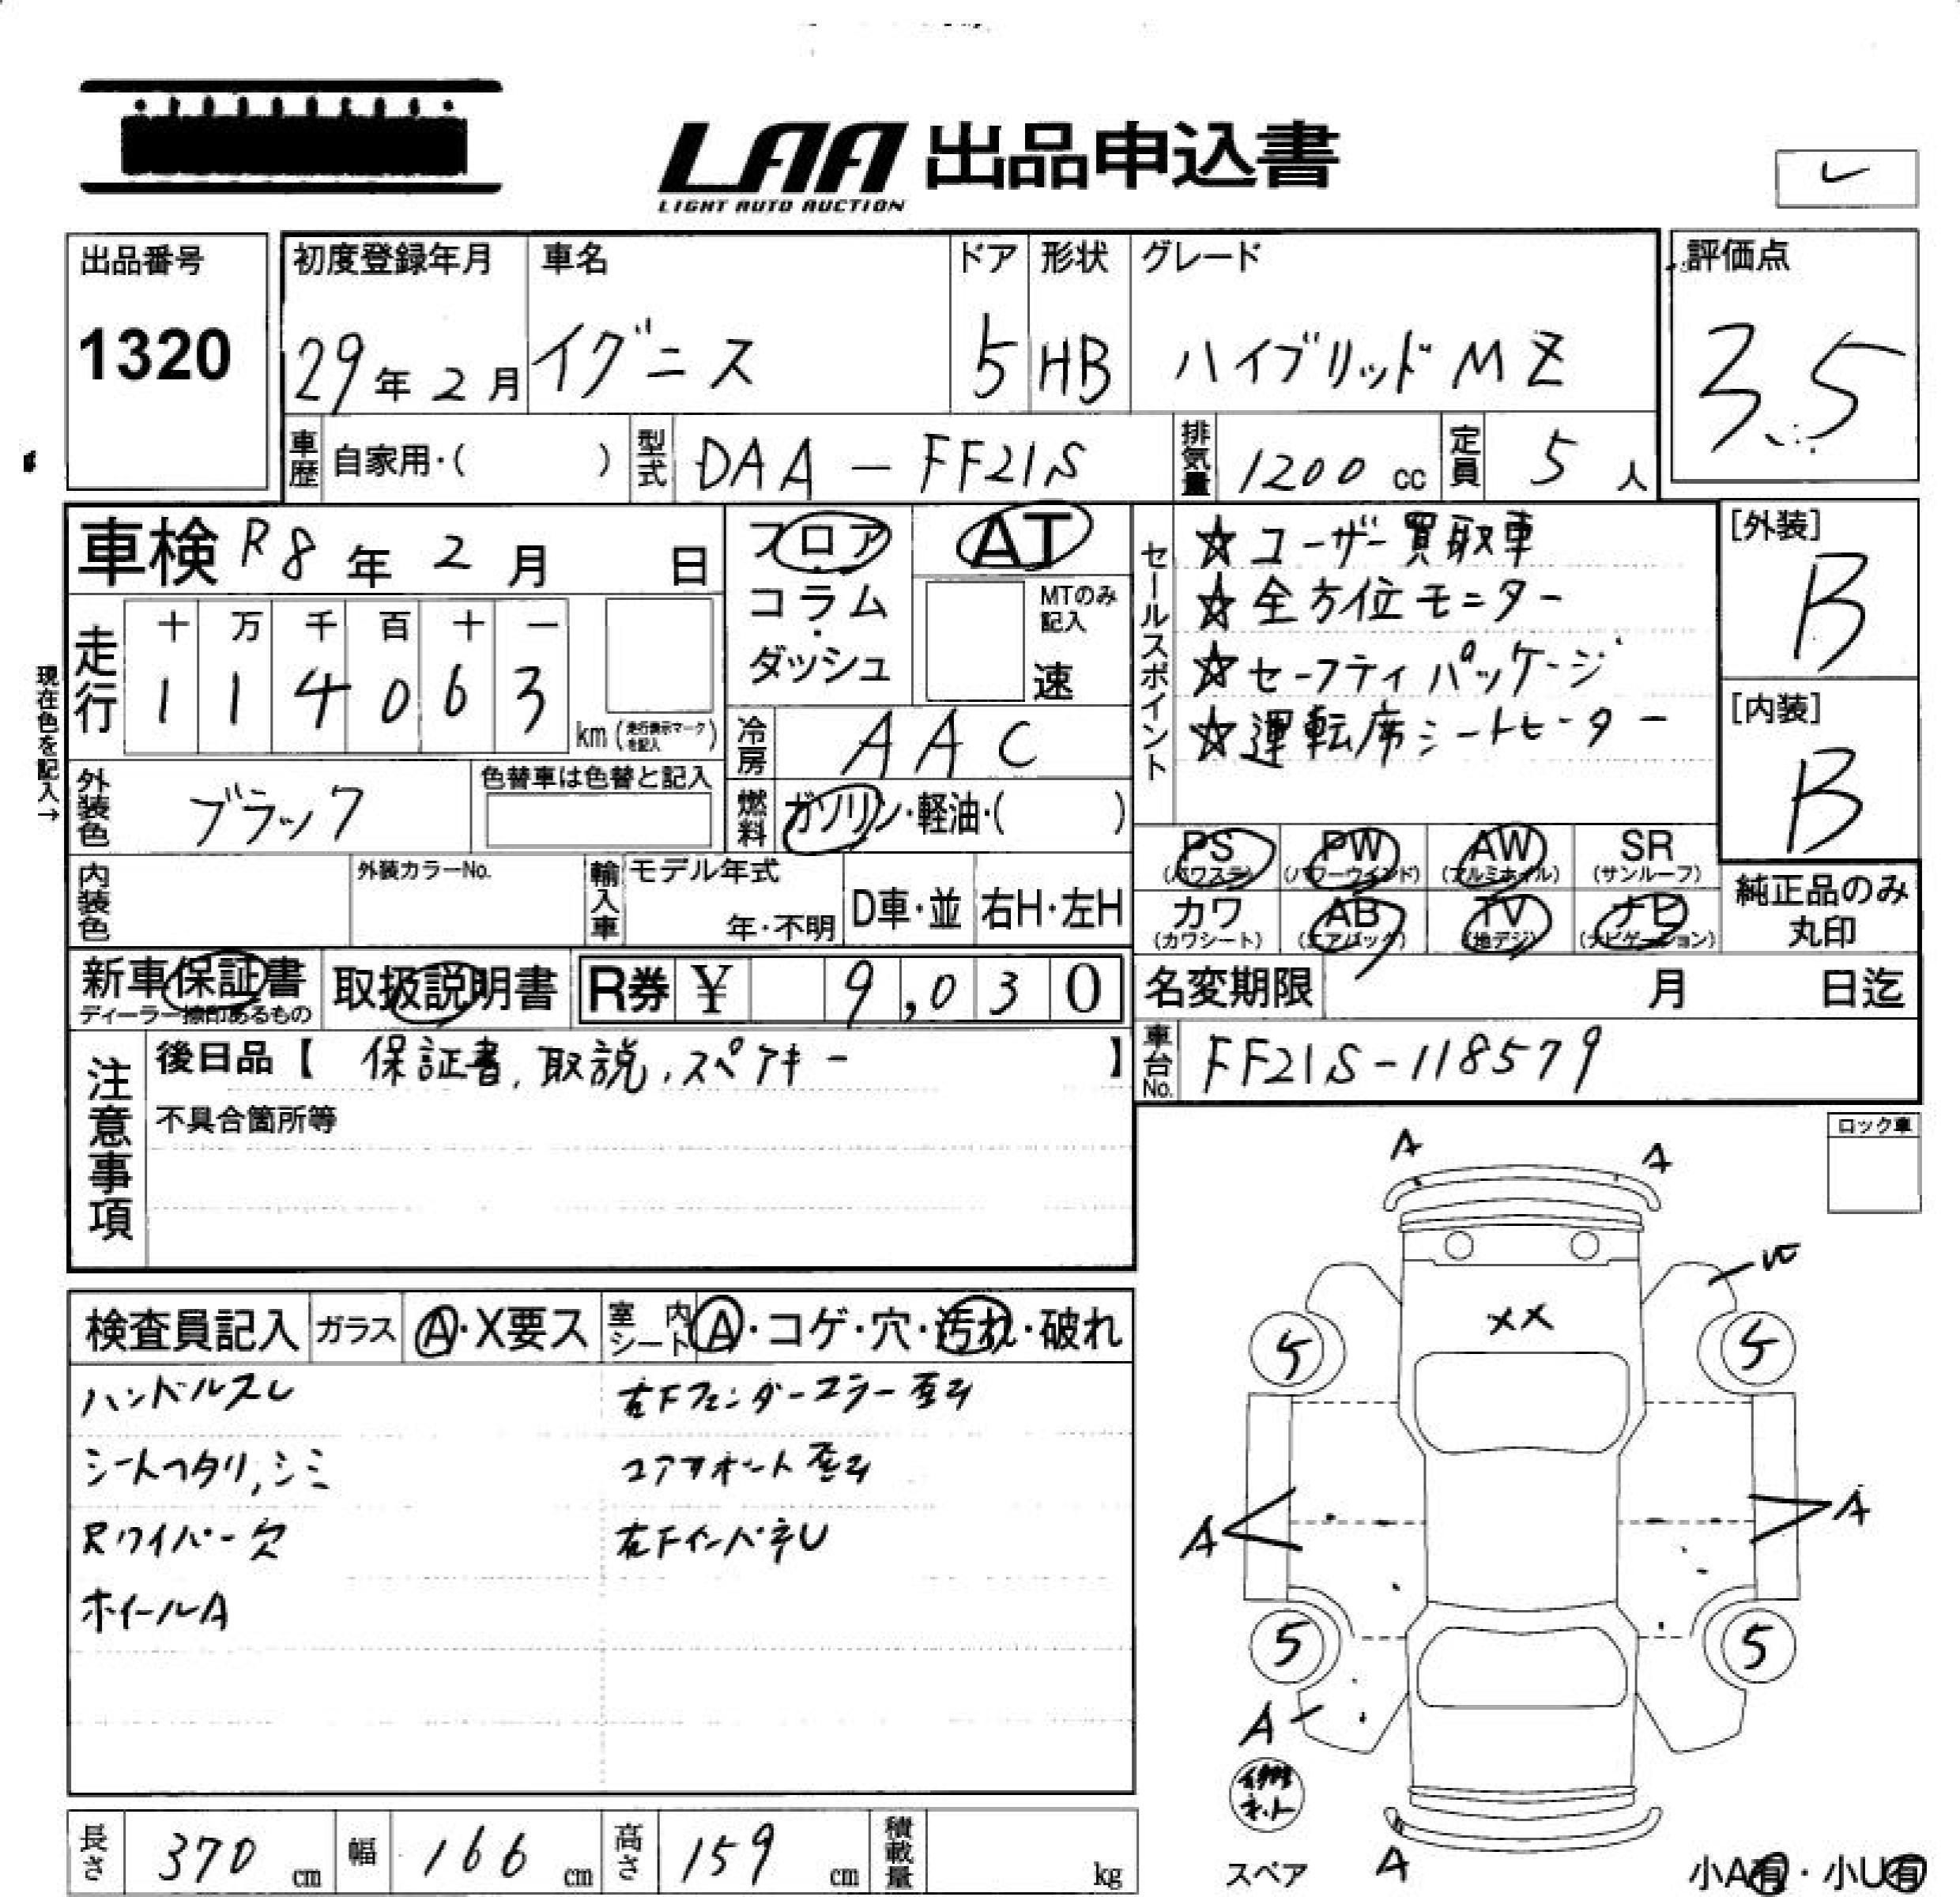 LAA 出品申込書
LIGHT AUTO AUCTION
レ
出品番号
1320
初度登録年月 車名 ドア 形状 グレード
29年 2月 イグニス 5 HB ハイブリッドMZ
評価点
3.5
車歴 自家用・( ) 型式 DAA-FF21S 排気量 1200 cc 定員 5 人
車検 R8年 2月 日
フロア・コラム・ダッシュ
AT
MTのみ記入
速
走行 十 万 千 百 十 一
1 1 4 0 6 3
km (走行表示マークを記入)
現在色を記入→
冷房 AAC
外装色 ブラック
色替車は色替と記入
燃料 ガソリン・軽油・( )
内装色
外装カラーNo.
輸入車 モデル年式 年・不明 D車・並 右H・左H
セールスポイント
☆ユーザー買取車
☆全方位モニター
☆セーフティパッケージ
☆運転席シートヒーター
[外装]
B
[内装]
B
PS (パワステ) PW (パワーウインド) AW (アルミホイル) SR (サンルーフ)
カワ (カワシート) AB (エアバック) TV (地デジ) ナビ (ナビゲーション)
純正品のみ丸印
新車保証書 取扱説明書 R券 ¥ 9,030
ディーラー捺印あるもの
名変期限 月 日迄
車台No. FF21S-118579
注意事項
後日品【 保証書, 取説, スペアキー 】
不具合箇所等
ロック車
検査員記入 ガラス A・X要ス 室内シート A・コゲ・穴・汚れ・破れ
ハンドルスレ
シートヘタリ, シミ
Rワイパー欠
ホイールA
右Fフェンダーエプロン歪み
コアサポート歪み
右FインパネU
A A
XX
5 5
A A
5 5
A
A
スペア
小A有・小U有
長さ 370 cm 幅 166 cm 高さ 159 cm 積載量 kg